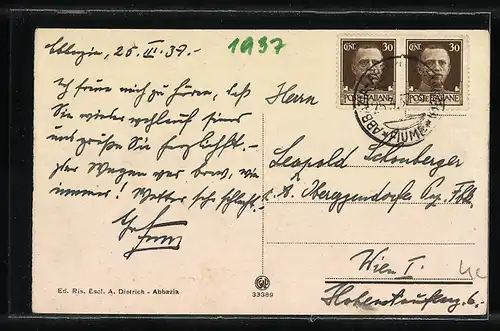 Abbazia, 25. III. 37.-
1937
Ich freue mich zu hören, daß
Sie wieder wohlauf sind
und grüße Sie herzlichst.-
Der Wagen war brav, wie
immer! Wetter sehr schlecht.-
Ihr
30 CENT. 30
POSTE ITALIANE POSTE ITALIANE
FIUME
Herrn
Leopold Schönberger
Wien I.
6.
Ed. Ris. Escl. A. Dietrich - Abbazia
33389